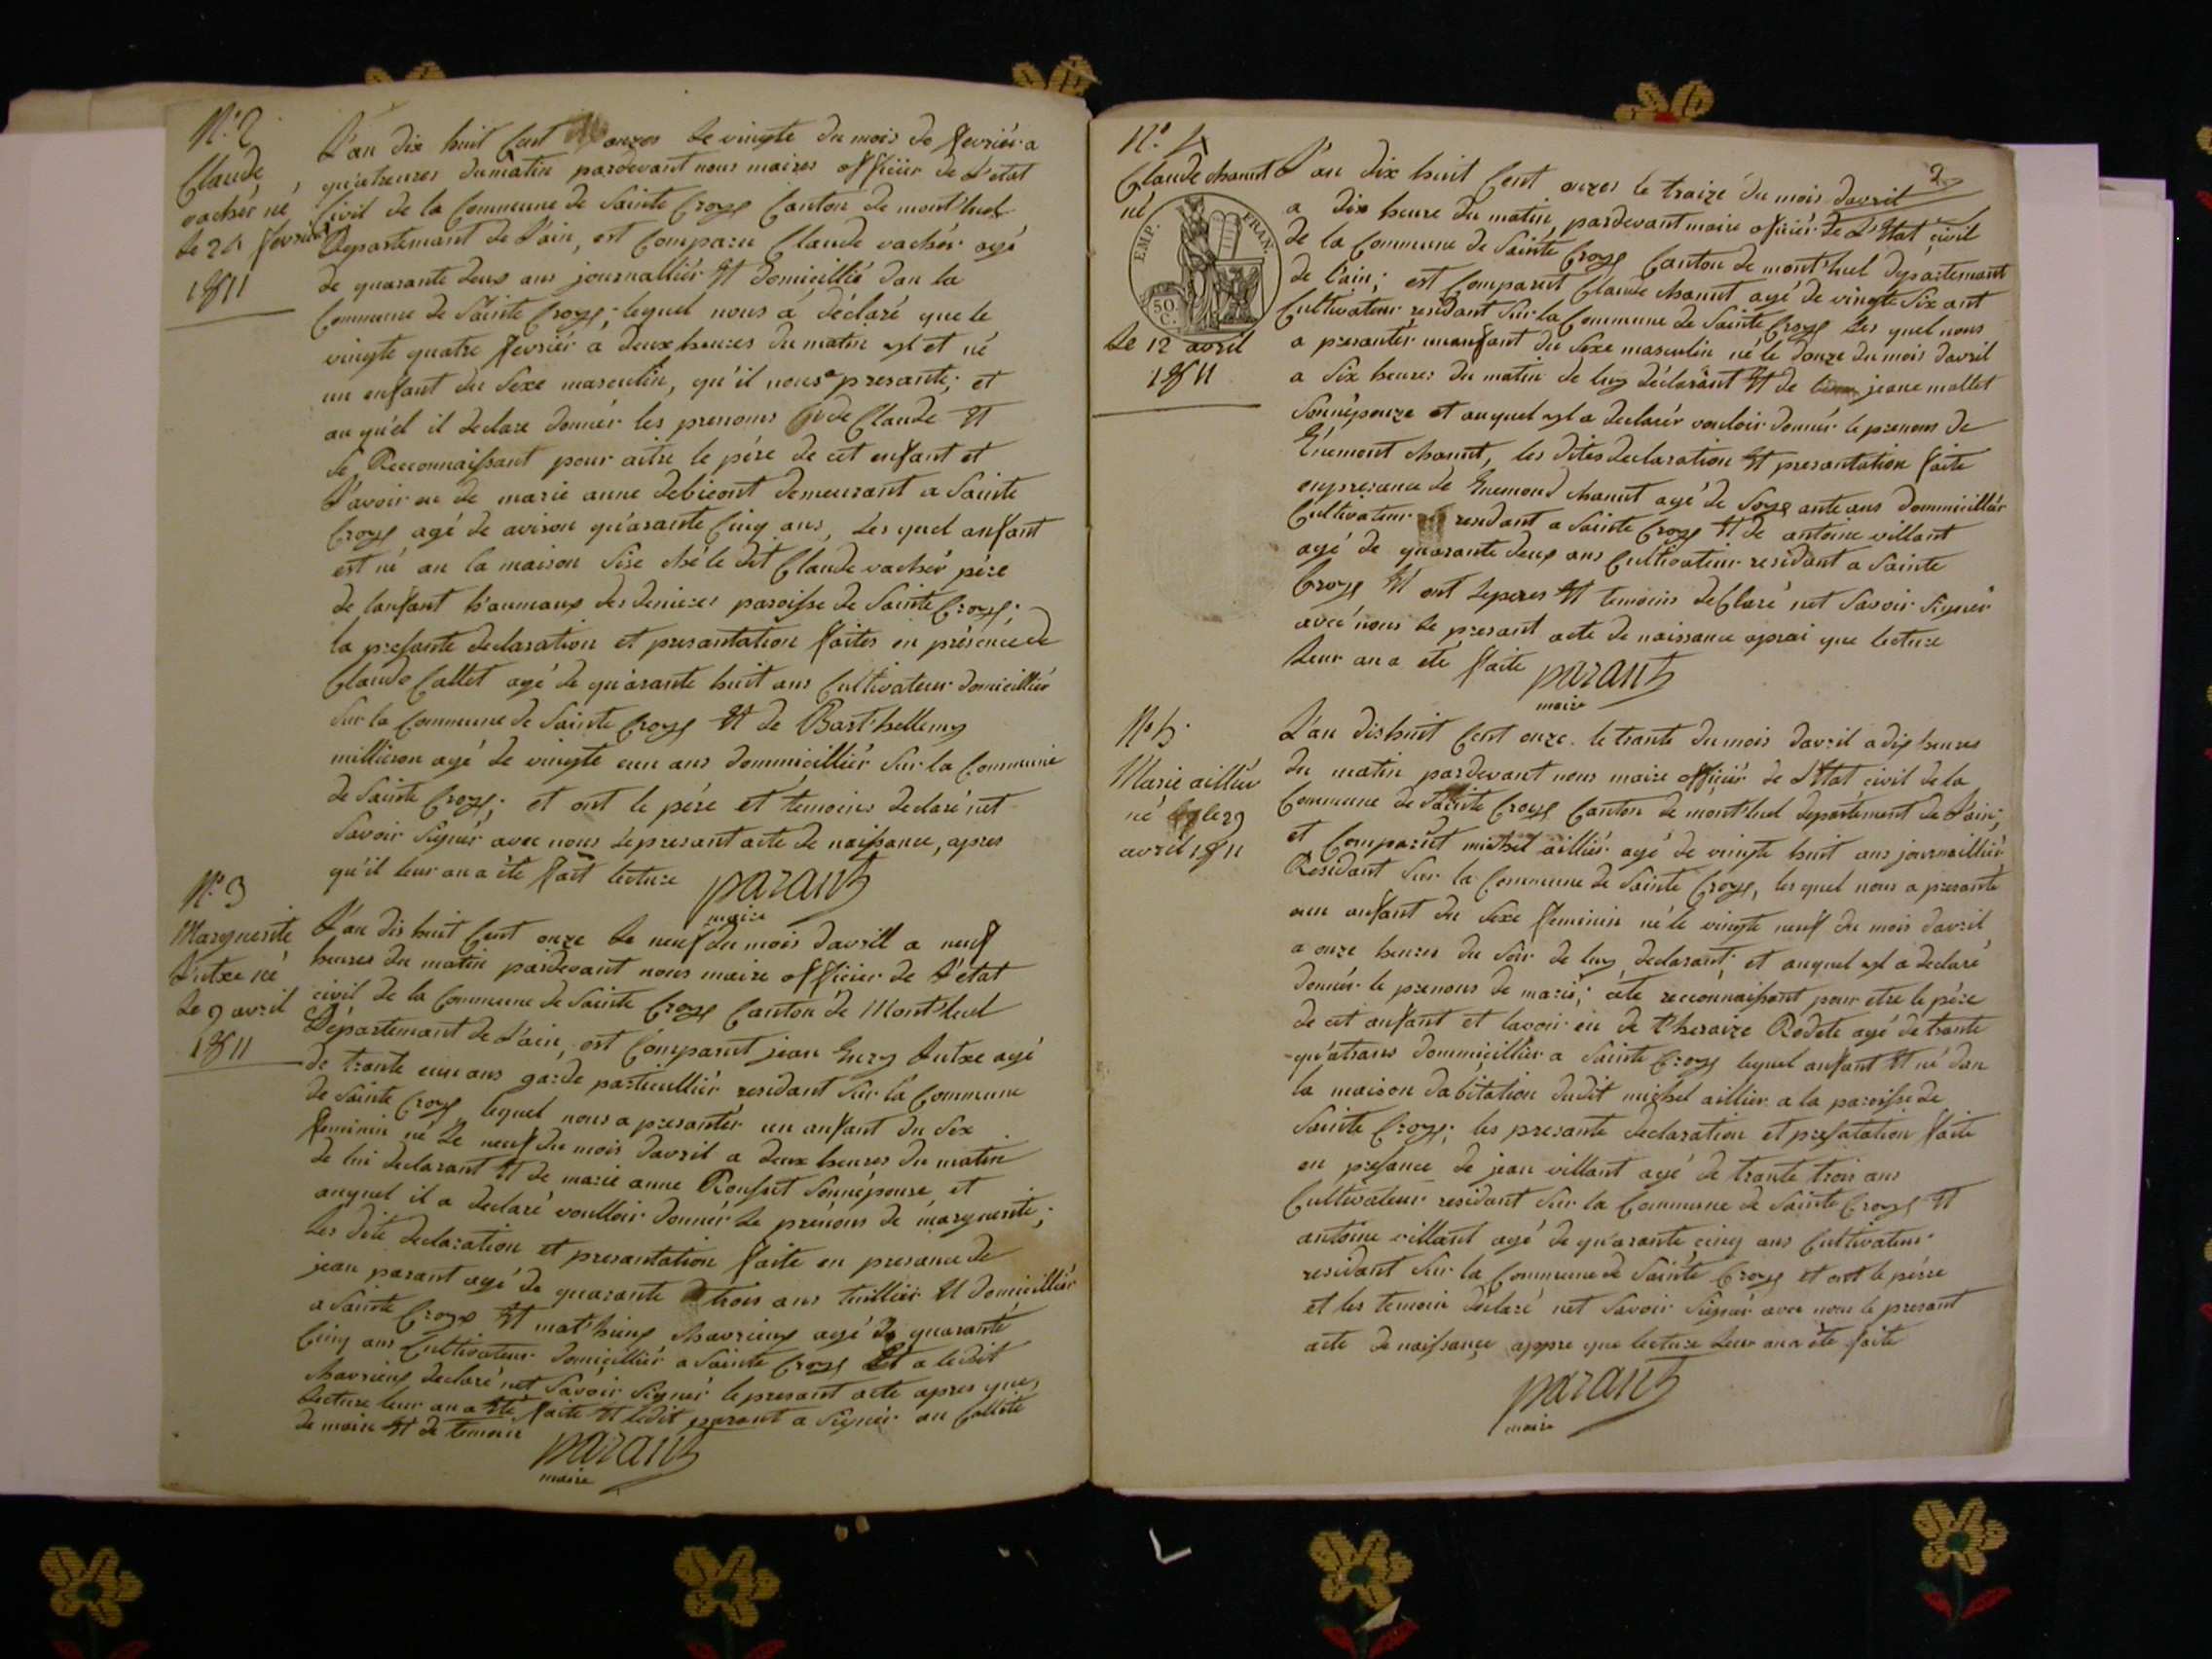 N.° 2
Claude
vachér né
le 24 fevrier
1811
L'an dix huit Cent onzes le vingte du mois de fevriér a
qu'atreures dumatin pardevant nous maires officiér de L'etat
Civil de la Commune de Sainte Croye Canton de mont'luel
Departemant de L'ain, est Comparu Claude vachér agé
de quarante deux ans journalliér Et domicillié dan la
Commune de Sainte Croye; lequel nous a déclaré que le
vingte quatre fevrier a deux heures du matin yl et né
un enfant du Sexe masculin, qu'il nous a presante; et
au qu'el il declare donnér les prenoms de Claude Et
Se Reconnaissant pour aitre le pére de cet enfant et
L'avoir eu de marie anne debicont demeurant a Sainte
Croye agé de avison qu'arante Cinq ans, Les quel anfant
est né an la maison Sise ché le dit Claude vachér pére
de lanfant h'aumaux des deniers paroisse de Sainte Croye;
la presante declaration et presantation faites en présence de
Claude Callet agé de qu'arante huit ans Cultivateur domicilliér
Sur la Commune de Sainte Croye Et de Bart'hellemy
millieron agé de vingte eun ans dommicilliér Sur la Commune
de Sainte Croye; et ont le pére et temoins declaré net
Savoir Signér avec nous Le presant acte de naissance, apres
qu'il leur an a éte fait lecture parant
maire
N.° 3
Marguerite
Lutxe né
Le 9 avril
1811
L'an dis huit Cent onze Le neuf du mois d'avrill a neuf
heures du matin pardevant nous maire officier de L'état
civil de la Commune de Sainte Croye Canton de Mont'luel
Département de L'ain, est Comparut jean Lutxe agé
de trante eun ans garde particulliér residant Sur la Commune
de Sainte Croye lequel nous a presantér un anfant du Sex
feminin né Le neuf du mois davril a deux heures du matin
de lui declarant Et de marie anne Ronfart Sonnépouse, et
auquel il a declaré voulloir donnér Le prénons de marguerite;
Les dite declaration et presantation faite en presance de
jean parant agé de quarante trois ans tuillier Et domicilliér
a Sainte Croye Et mat'hieux chavrieux agé de quarante
Cinq ans Cultivateur domicilliér a Sainte Croye Et a ledit
chavrieux declaré net Savoir Signér le presant acte apres que
Lecture leur an a Eté faite Et ledit parant a Signér an Callité
de maire Et de temoin parant
maire
2
N.° 4
Claude chanut
né
EMP. FRAN.
50 C.
Le 12 avril
1811
L'an dix huit Cent onzes le traize du mois davril
a dix heure du matin, pardevant maire oficiér de L'Etat civil
de la Commune de Sainte Croye Canton de mont'luel départemant
de l'ain; est Comparut Claude chanut agé de vingte Six ant
Cultivateur residant Sur la Commune de Sainte Croye Les quel nous
a presantér un anfant du Sexe masculin né le douze du mois davril
a Six heures du matin de luy déclarant Et de jeane mallet
Sonnépouze et auquel yl a declarér vouloir donnér le prenons de
Enemont chanut, les dites declaration Et presantation faite
enpresance de Enemond chanut agé de Soyxante ans dommicilliér
Cultivateur residant a Sainte Croye Et de antoine villant
agé de quarante deux ans Cultivateur residant a Sainte
Croye Et ont Leperes Et temoins declaré net Savoir Signér
avec nous Le presant acte de naissance aprai que lecture
Leur an a eté faite parant
maire
N.° 5
Marie aillier
né le 29
avril 1811
L'an dishuit Cent onze. le trante du mois davril a dix heures
du matin pardevant nous maire officiér de L'Etat civil de la
Commune de Sainte Croye Canton de mont'luel département de L'ain;
et Comparut michel ailliér agé de vingte huit ans journailliér
Residant Sur la Commune de Sainte Croye, les quel nous a presante
aun anfant du Sexe feminin né le vingte neuf du mois davril
a onze heures du Soir de luy declarant; et auquel yl a declaré
donnér le prenons de marié; ete reconnaissant pour etre le pére
de cet anfant et lavoir eu de theraize Rodete agé de trante
qu'atrans dommicilliér a Sainte Croye lequel anfant Et né dan
la maison dabitation dudit michel aillier a la paroisse de
Sainte Croye; les presante declaration et presatation faite
en presance de jean villant agé de trante trois ans
Cultivateur residant Sur la Commune de Sainte Croye Et
antoine villant agé de qu'arante cinq ans Cultivateur
residant Sur la Commune de Sainte Croye et ont le pérre
et les temoin déclaré net Savoir Signér avec nous le presant
acte de naissance appre que lecture Leur an a éte faite
parant
maire